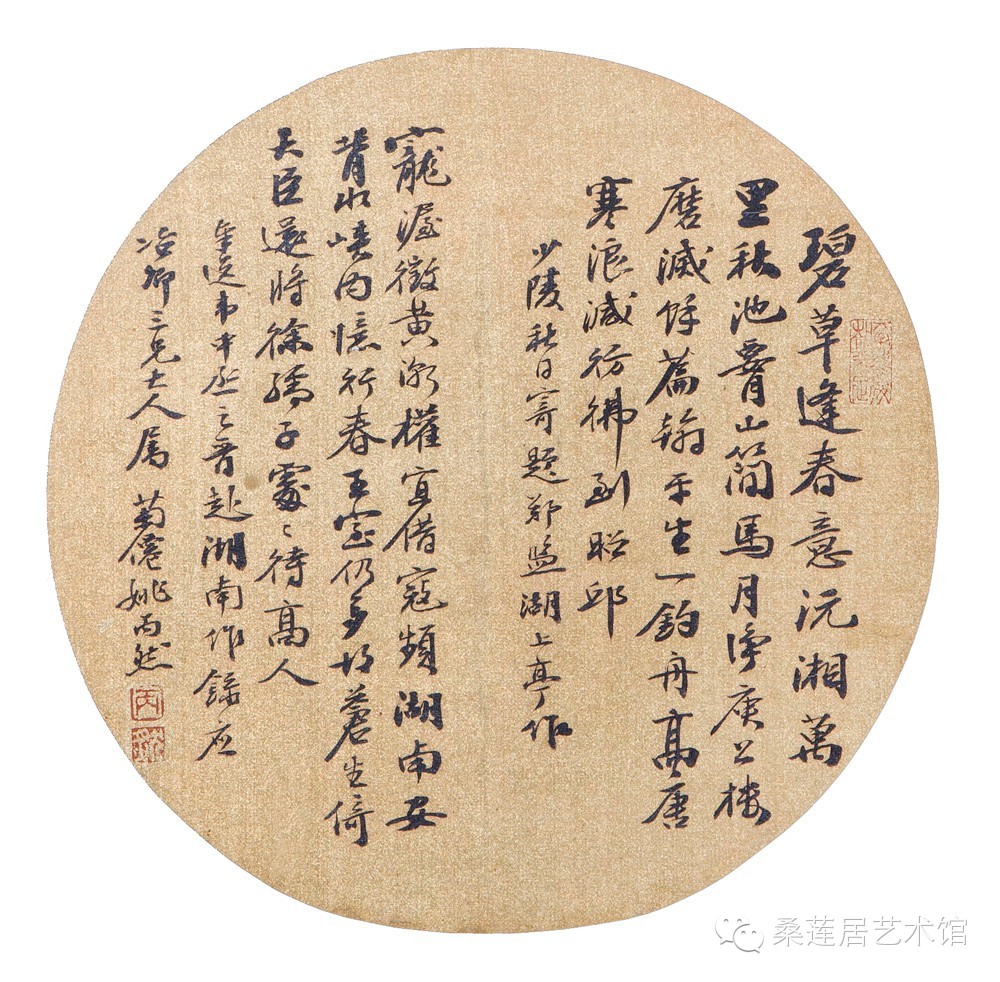 碧草逢春意沅湘萬
里秋池要山简馬月净庾公楼
磨滅餘篇翰平生一釣舟高唐
寒浪減彷彿到昭邱
少陵秋日寄題鄭監湖上亭作
寵渥徵黄漸權宜借寇頻湖南安
背水峽内憶行春王室仍多故蒼生倚
大臣還將徐孺子處々待高人
奉送韦中丞之晋赴湖南作錄应
冶卿三兄大人属 菊僊姚丙然
丙
然
桑莲居艺术馆